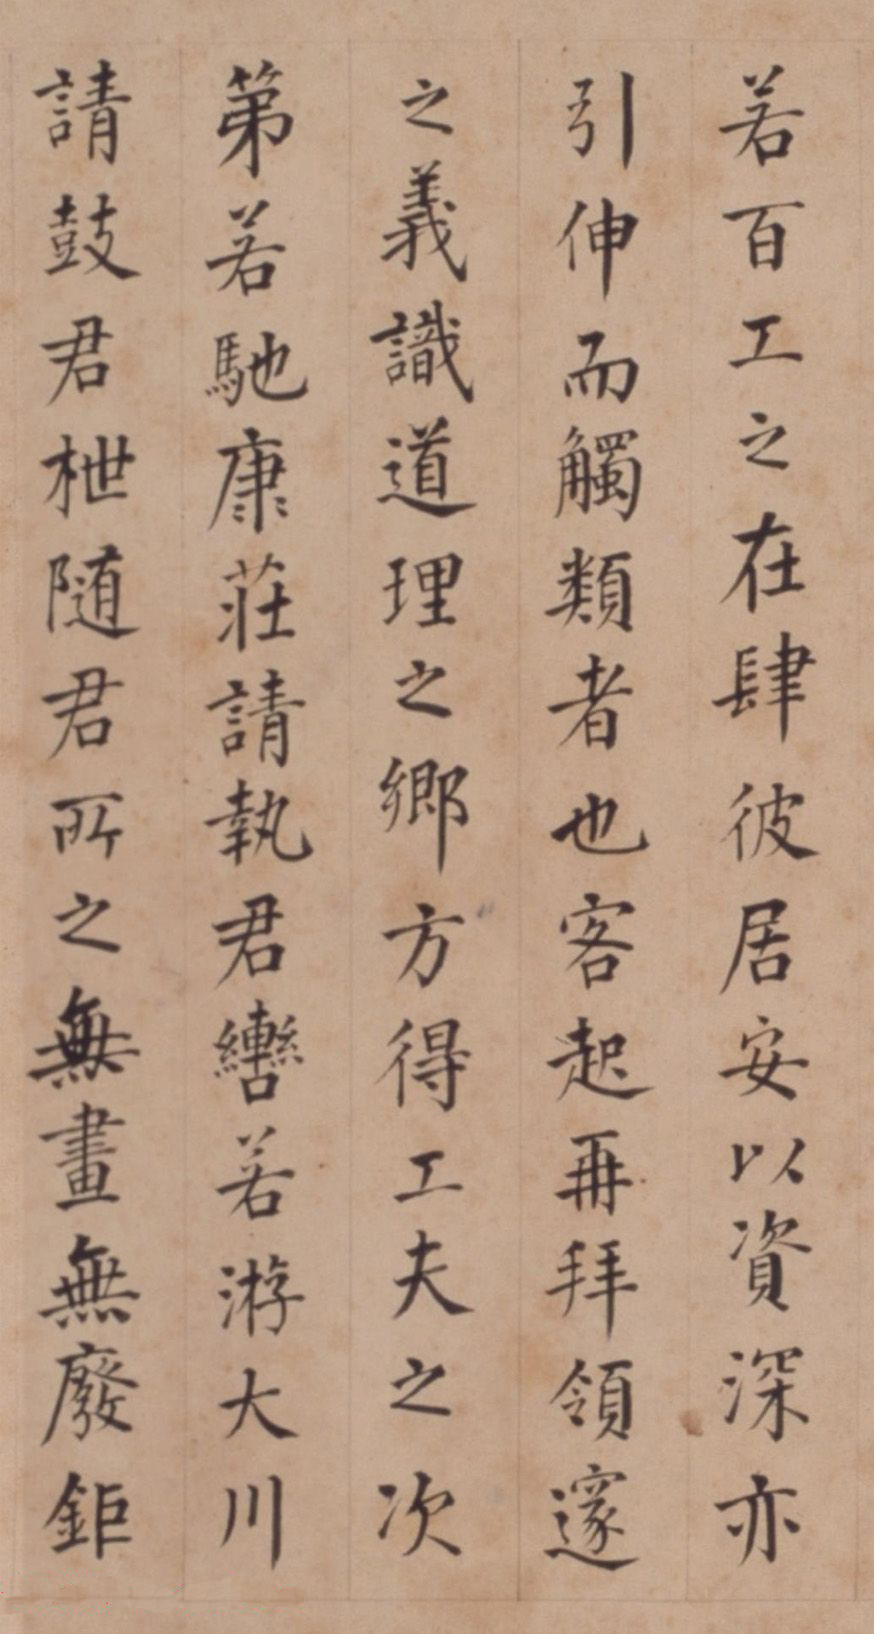 若百工之在肆彼居安以資深亦
引伸而觸類者也客起再拜領邃
之義識道理之鄉方得工夫之次
第若馳康莊請執君轡若游大川
請鼓君枻隨君所之無畫無廢鉅